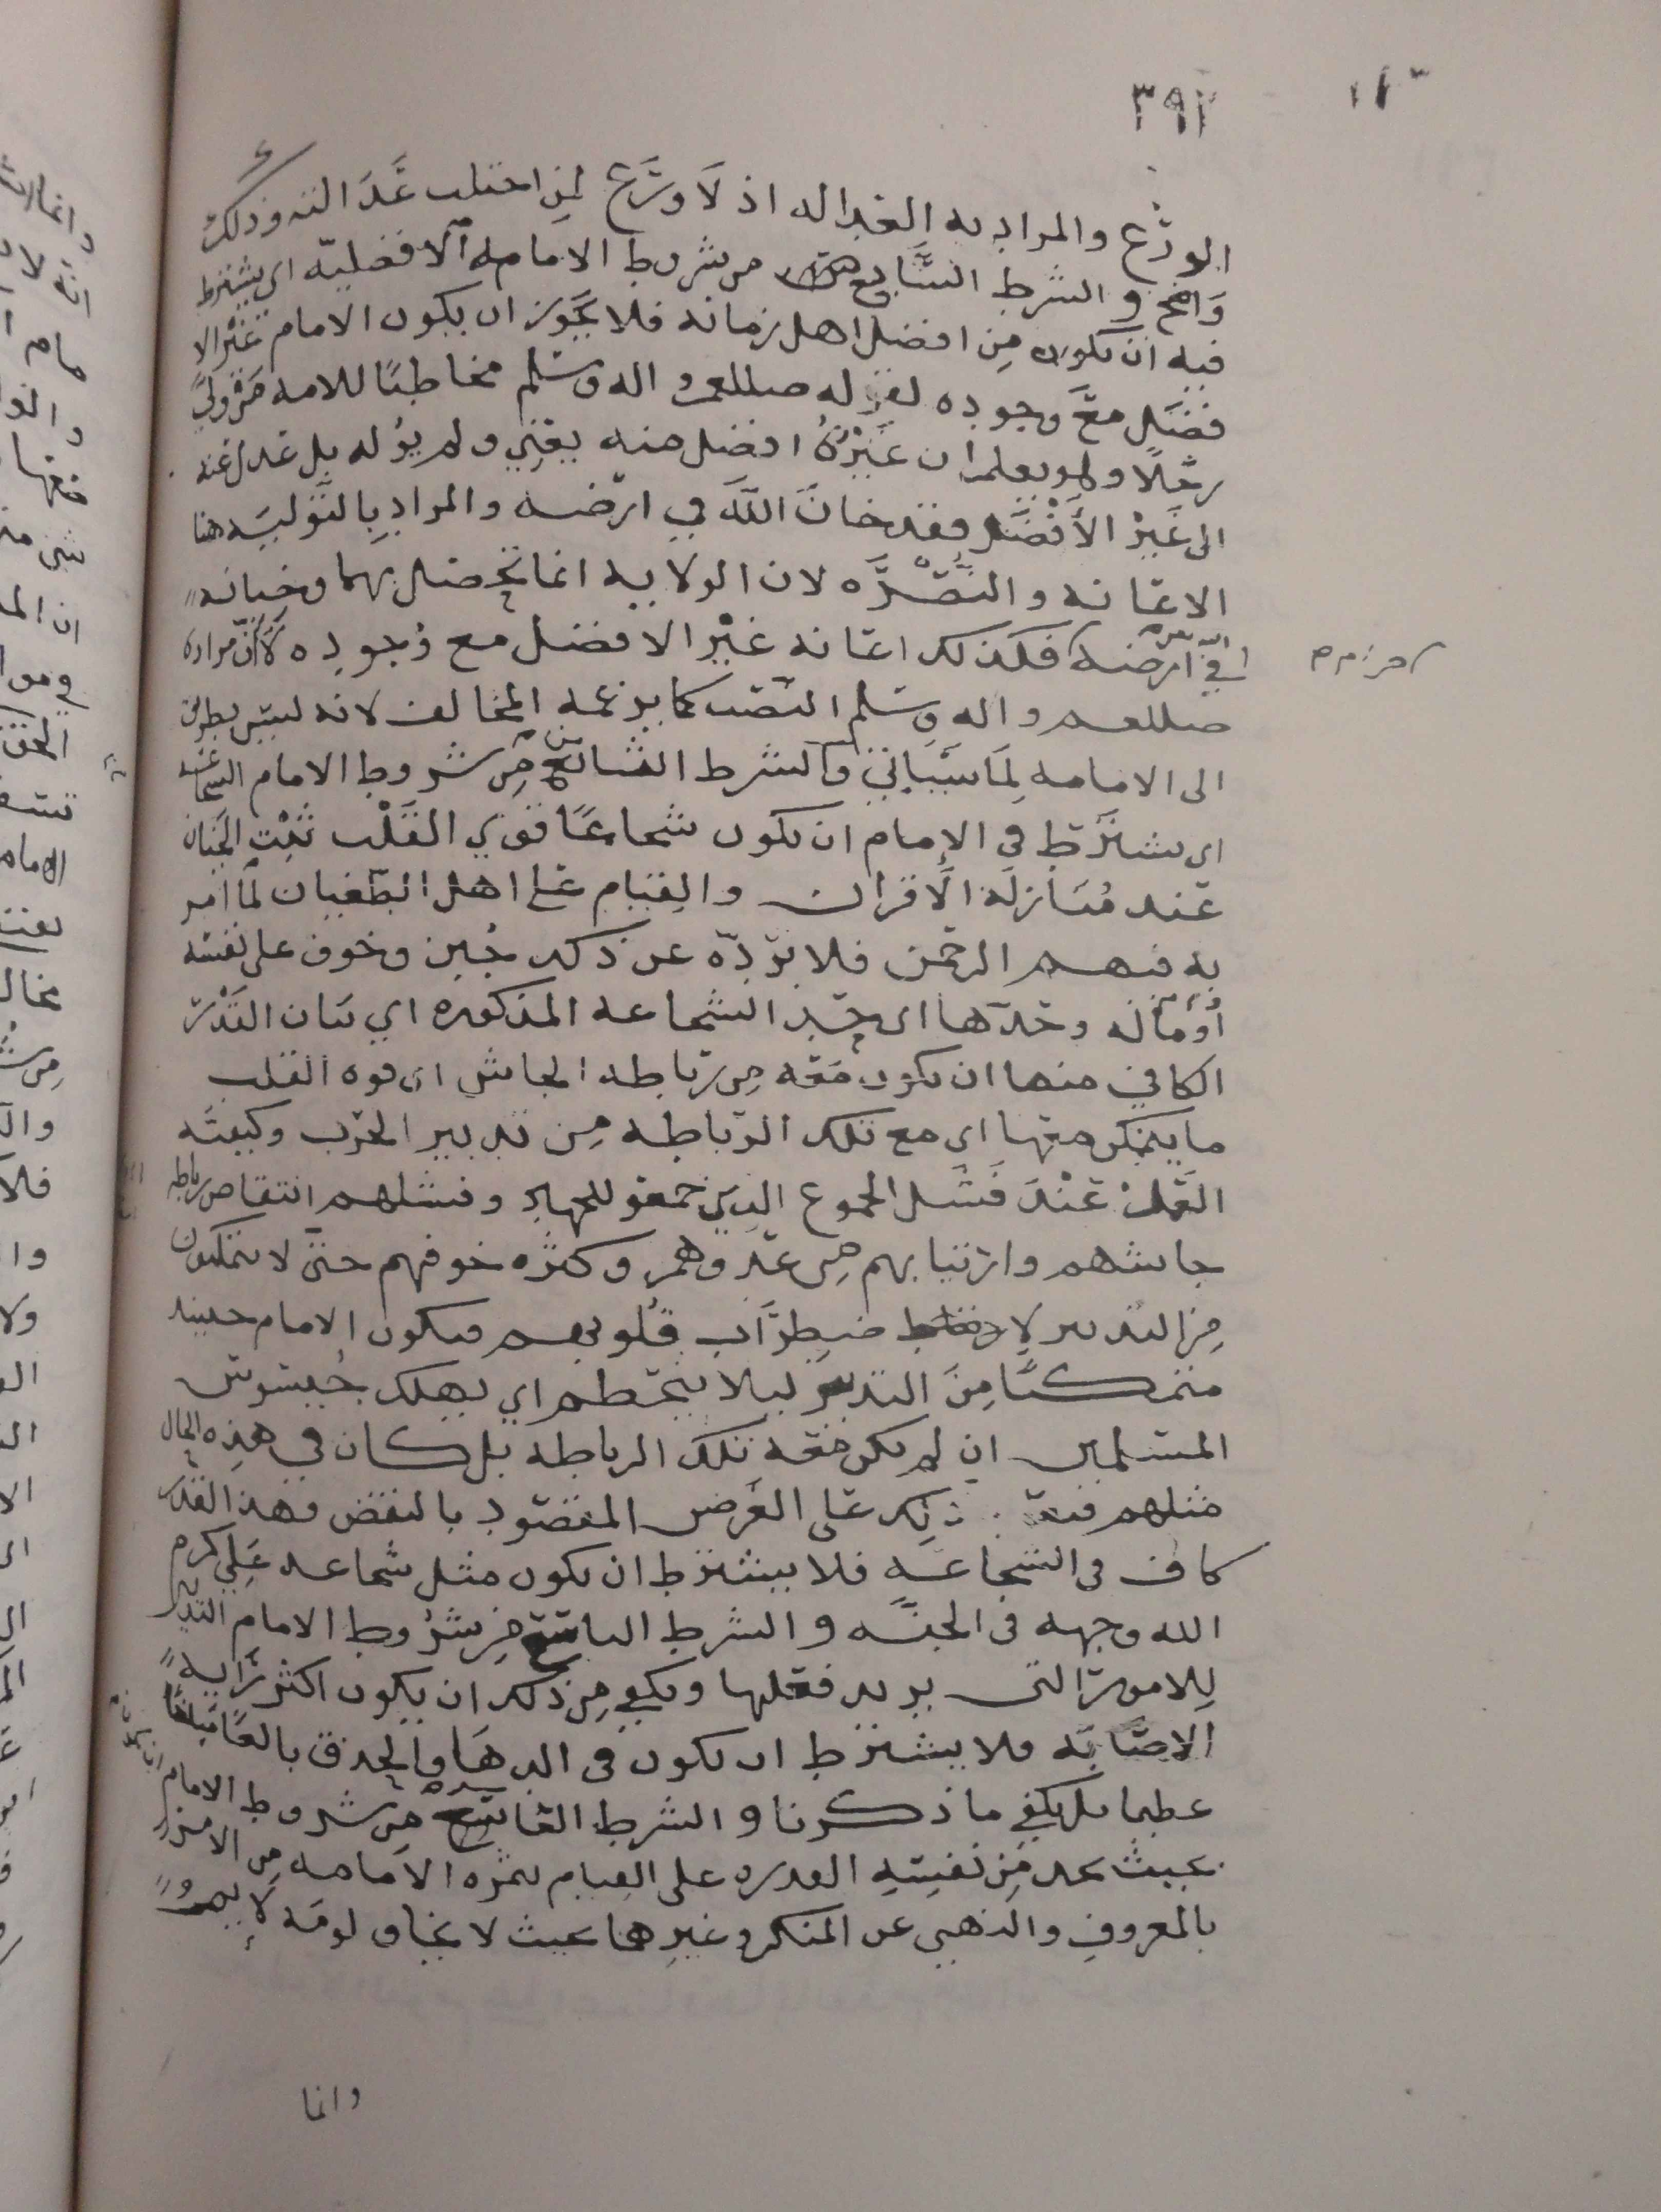 ٣٩٢
الورَع والمراد به العداله اذ لَا وَرَع لمِن اختلت عَدَالته وذلك
وَاضح و الشرط السَّابع من شروط الامامه الافضليّه اي يشترط
فيه ان يكون مِن افضل اهل زمانه فلا يجَوز ان يكون الامام غيْر الا
فضَل معَ وجوده لقوله صللعم واله وسَلم مخاطبًا للامه مَن وليَ
رجلًا ولم يعلم ان غيْرهُ افضل منه يعَني ولم يوُله بل عَدل عنه
الى غَيرْ الأَفْضَل فقد خانَ اللَّهَ في ارْضه والمراد بِالتَّوليَه هنا
الاعَانه والنّصْرَه لان الولايه انما تحْصَل بهما وخيانه
في ارضه فكذلك اعَانه غيْر الافضل مع وُجودِه لأنّ مراده
صللعم واله وسَلم النصَب كما يزعمه المخالف لانه ليسَ بطريق
الى الامامه لِمَا سَيَاتي والشرط الثامن مِن شروط الامام الشجاعه
اي يشترَط في الإمام ان يكون شجاعًا قوي القَلْب ثَبْت الجَنان
عَند مُنَازلَة الأَقران والقِيام عَلى اهل الطّغيان لمَا امر
به فيهم الرحمَن فلا يرَدّه عن ذلك جُبن وخوف على نفسه
أوْ مَاله وحَدّها اي حَد الشجاعه المذكوره اي بيَان القَدْر
الكافي منها ان يكون مَعَه مِن رَباطه الجاش اي قوه القلب
ما يتمَكن معَها اي مع تلك الرّباطه مِن تدبير الحَرْب وكيفيَه
العَمَل عَنْدَ فَشَل الجموع الذين جمعَو للجهاد وفشلهم انتقاص رباطه
جاشهم وارْتيابهم مِن عَدوهم وكثره خوفهم حتى لا يتمكنون
مِن التدبير لاضطرَاب قلوبهم فيكون الامام حينيد
متمَكنًا مِنَ التدبير ليلا يتحَطم اي يهلك بجيشوش
المسَلمين ان لم يكن معَه تلك الرباطه بل كان في هذِه الحال
مثلهم ذلِك عَلى الغَرض المقصَود بالنقض فهذا القدر
كاف في الشجاعَه فلا يشترط ان يكون مثل شجاعه عَلي كرم
الله وجهه في الجنَه و الشرط التاسَع مِن شرُوط الامام التدبير
لِلامور التي يريد فعَلها ويكفي مِن ذلك ان يكون اكثر رَايه
الاصَابَه فلا يشترط ان يكون في الدهَاء والحِذق بالغًا مَبلغًا
عظيما بل يكفي ما ذكرنا و الشرط العَاشر مِن شروط الامام
بحيث يجد مِن نفسِه القدره على القِيام بثمره الامامه مِن الامرْ
بالمعروفِ والنهي عن المنكر وغيرهما بحيث لا يخاف لومَه
وانما